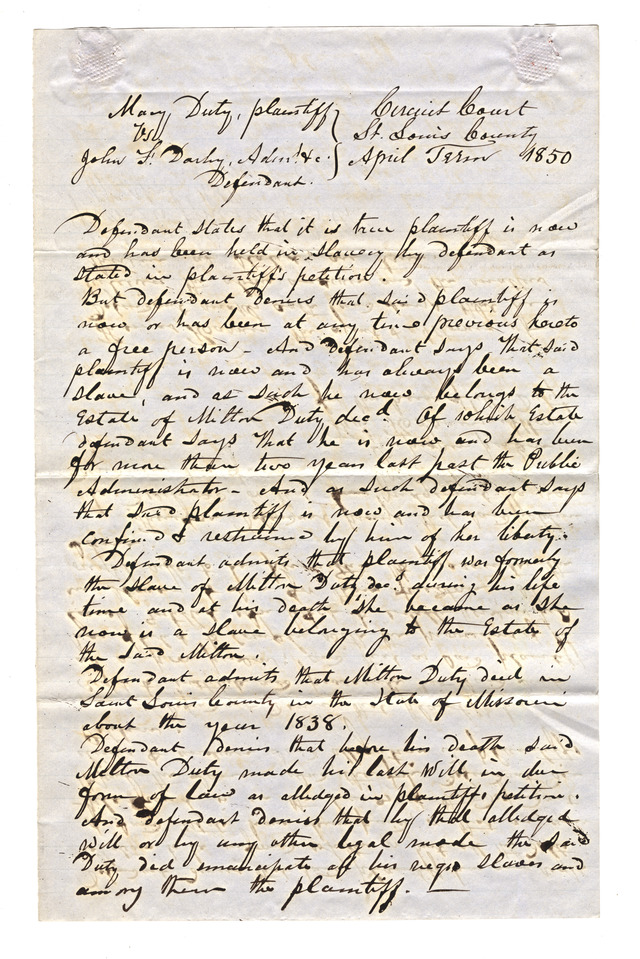 Mary Duty, plaintiff } Circuit Court
Vs } St. Louis County
John F. Darby, Admr. &c. } April Term 1850
Defendant.
Defendant states that it is true plaintiff is now
and has been held in slavery by defendant as
stated in plaintiff's petition.
But defendant Denies that said plaintiff is
now or has been at any time previous hereto
a free person - And defendant says that said
plaintiff is now and has always been a
slave, and as such he now belongs to the
Estate of Milton Duty decd. Of which Estate
defendant says that he is now and has been
for more than two years last past the Public
Administrator - And as such defendant says
that said plaintiff is now and has been
confined & restrained by him of her liberty.
Defendant admits that plaintiff was formerly
the slave of Milton Duty decd during his life
time and at his death she became as she
now is a slave belonging to the Estate of
the said Milton.
Defendant admits that Milton Duty died in
Saint Louis County in the State of Missouri
about the year 1838.
Defendant Denies that before his death said
Milton Duty made his last Will in due
form of law as alledged in plaintiff's petition.
And defendant Denies that by that alledged
Will or by any other legal mode the said
Duty did emancipate all his negro slaves and
among them the plaintiff. —